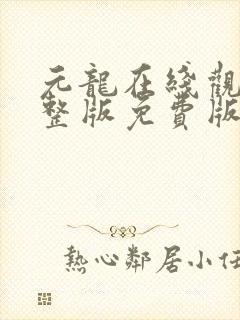 元龍在綫觀
整版免費版
熱心鄰居小任